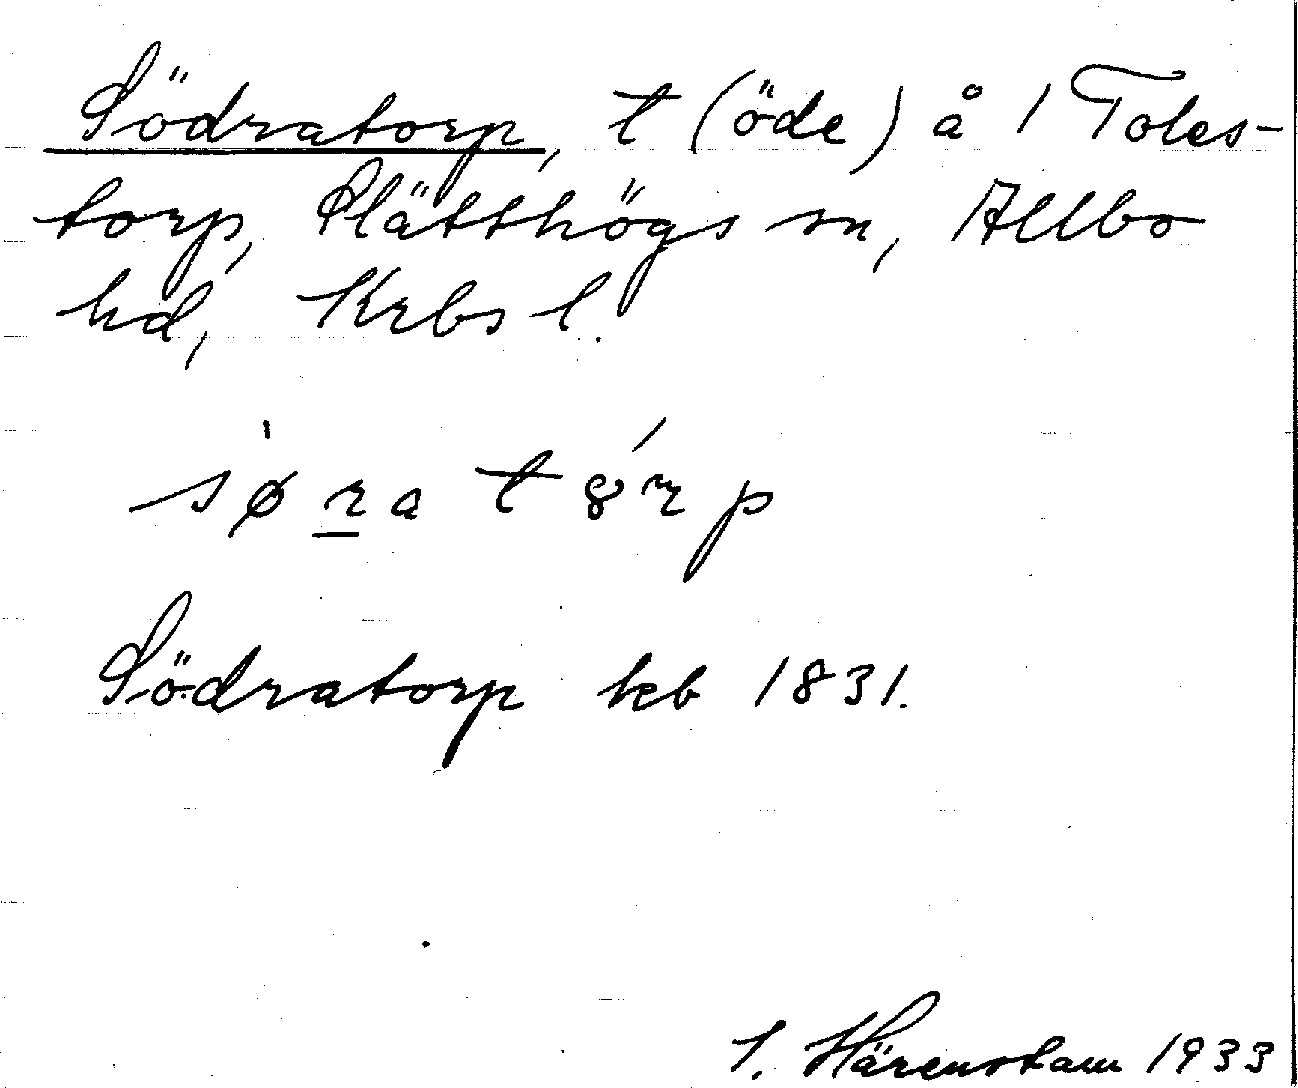 Södratorp, t (öde) å 1 Toles-
torp, Slätthögs sn, Allbo
hd, Krbs l.
sø̀ra tȣ́rp
Södratorp kb 1831.
I. Härenstam 1933